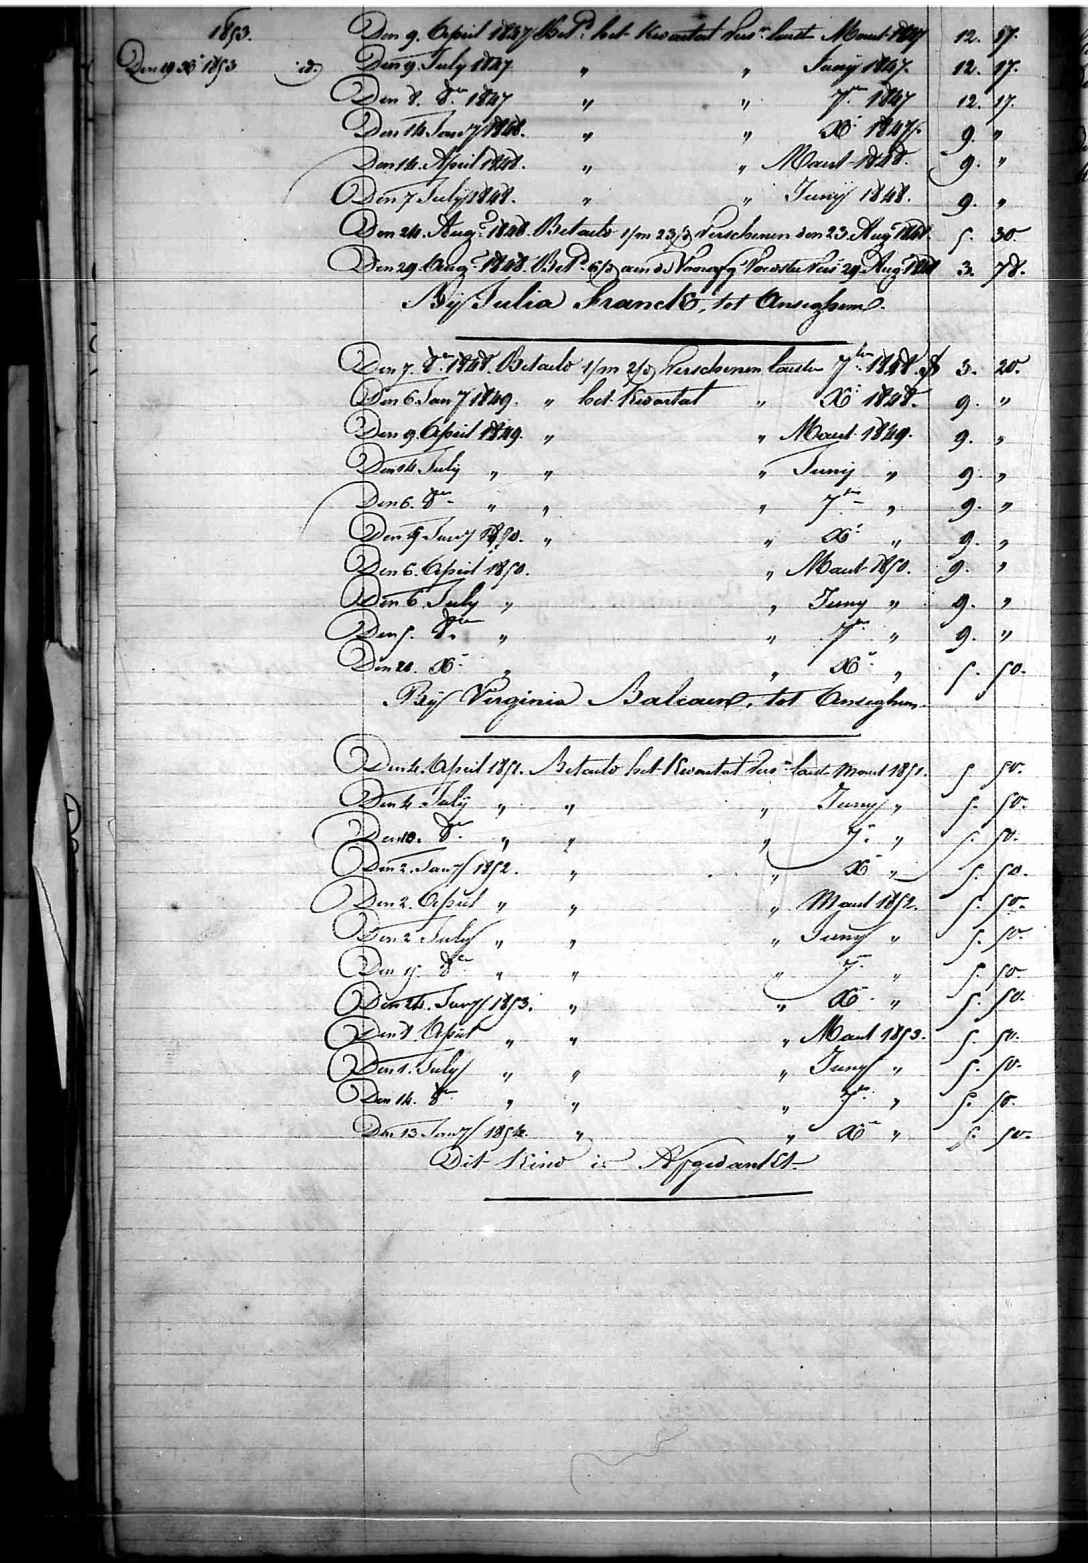 1853.
Den 9. April 1847 Bet.d het Kwartaal Vers.n laatste Maart 1847 12. 17.
Den 19 Xb 1853 id. Den 9. July 1847 " " Juny 1847. 12. 17.
Den 8. 8.er 1847 " " 7.er 1847 12. 17.
Den 14 Jan.y 1848. " " Xb 1847. 9. "
Den 14. April 1848. " " Maart 1848. 9. "
Den 7 July 1848. " " Juny 1848. 9. "
Den 24. Aug.t 1848. Betaald 1/m 23/d Verschenen den 23. Aug.t 1848. 5. 30.
Den 29. Aug.t 1848. Bet.d 6/d aen de Voorafg.e Voedster Vers. 29 Aug.t 1848 3. 78.
By Julia Franck, tot Anseghem.
Den 7. 8.er 1848. Betaald 1/m 2/d Verschenen laatste 7.ber 1848. 3. 20.
Den 6 Jan.y 1849. " het Kwartaal " Xb 1848. 9. "
Den 9. April 1849. " " Maart 1849. 9. "
Den 14 July " " " Juny " 9. "
Den 6. 8.er " " " 7.ber " 9. "
Den 5 Jan.y 1850. " " Xb " 9. "
Den 6. April 1850. " Maart 1850. 9. "
Den 6 July " " Juny " 9. "
Den 5. 8.er " " 7.er " 9. "
Den 21. Xb " " Xb " 5. 50.
By Virginia Balcaen, tot Anseghem.
Den 4. April 1851. Betaald het Kwartaal Vers.n laatst Maart 1851. 5. 50.
Den 4. July " " " Juny " 5. 50.
Den 10. 8.er " " " 7.r " 5. 50.
Den 2. Jan.y 1852. " " Xb " 5. 50.
Den 2. April " " " Maart 1852. 5. 50.
Den 2 July " " " Juny " 5. 50.
Den 15. 8.er " " " 7.r " 5. 50.
Den 24. Jan.y 1853. " " Xb " 5. 50.
Den 8. April " " " Maart 1853. 5. 50.
Den 1. July " " " Juny " 5. 50.
Den 14. 8.er " " " 7.er " 5. 50.
Den 13 Jan.y 1854. " " Xb " 5. 50.
Dit Kind is Afgedankt